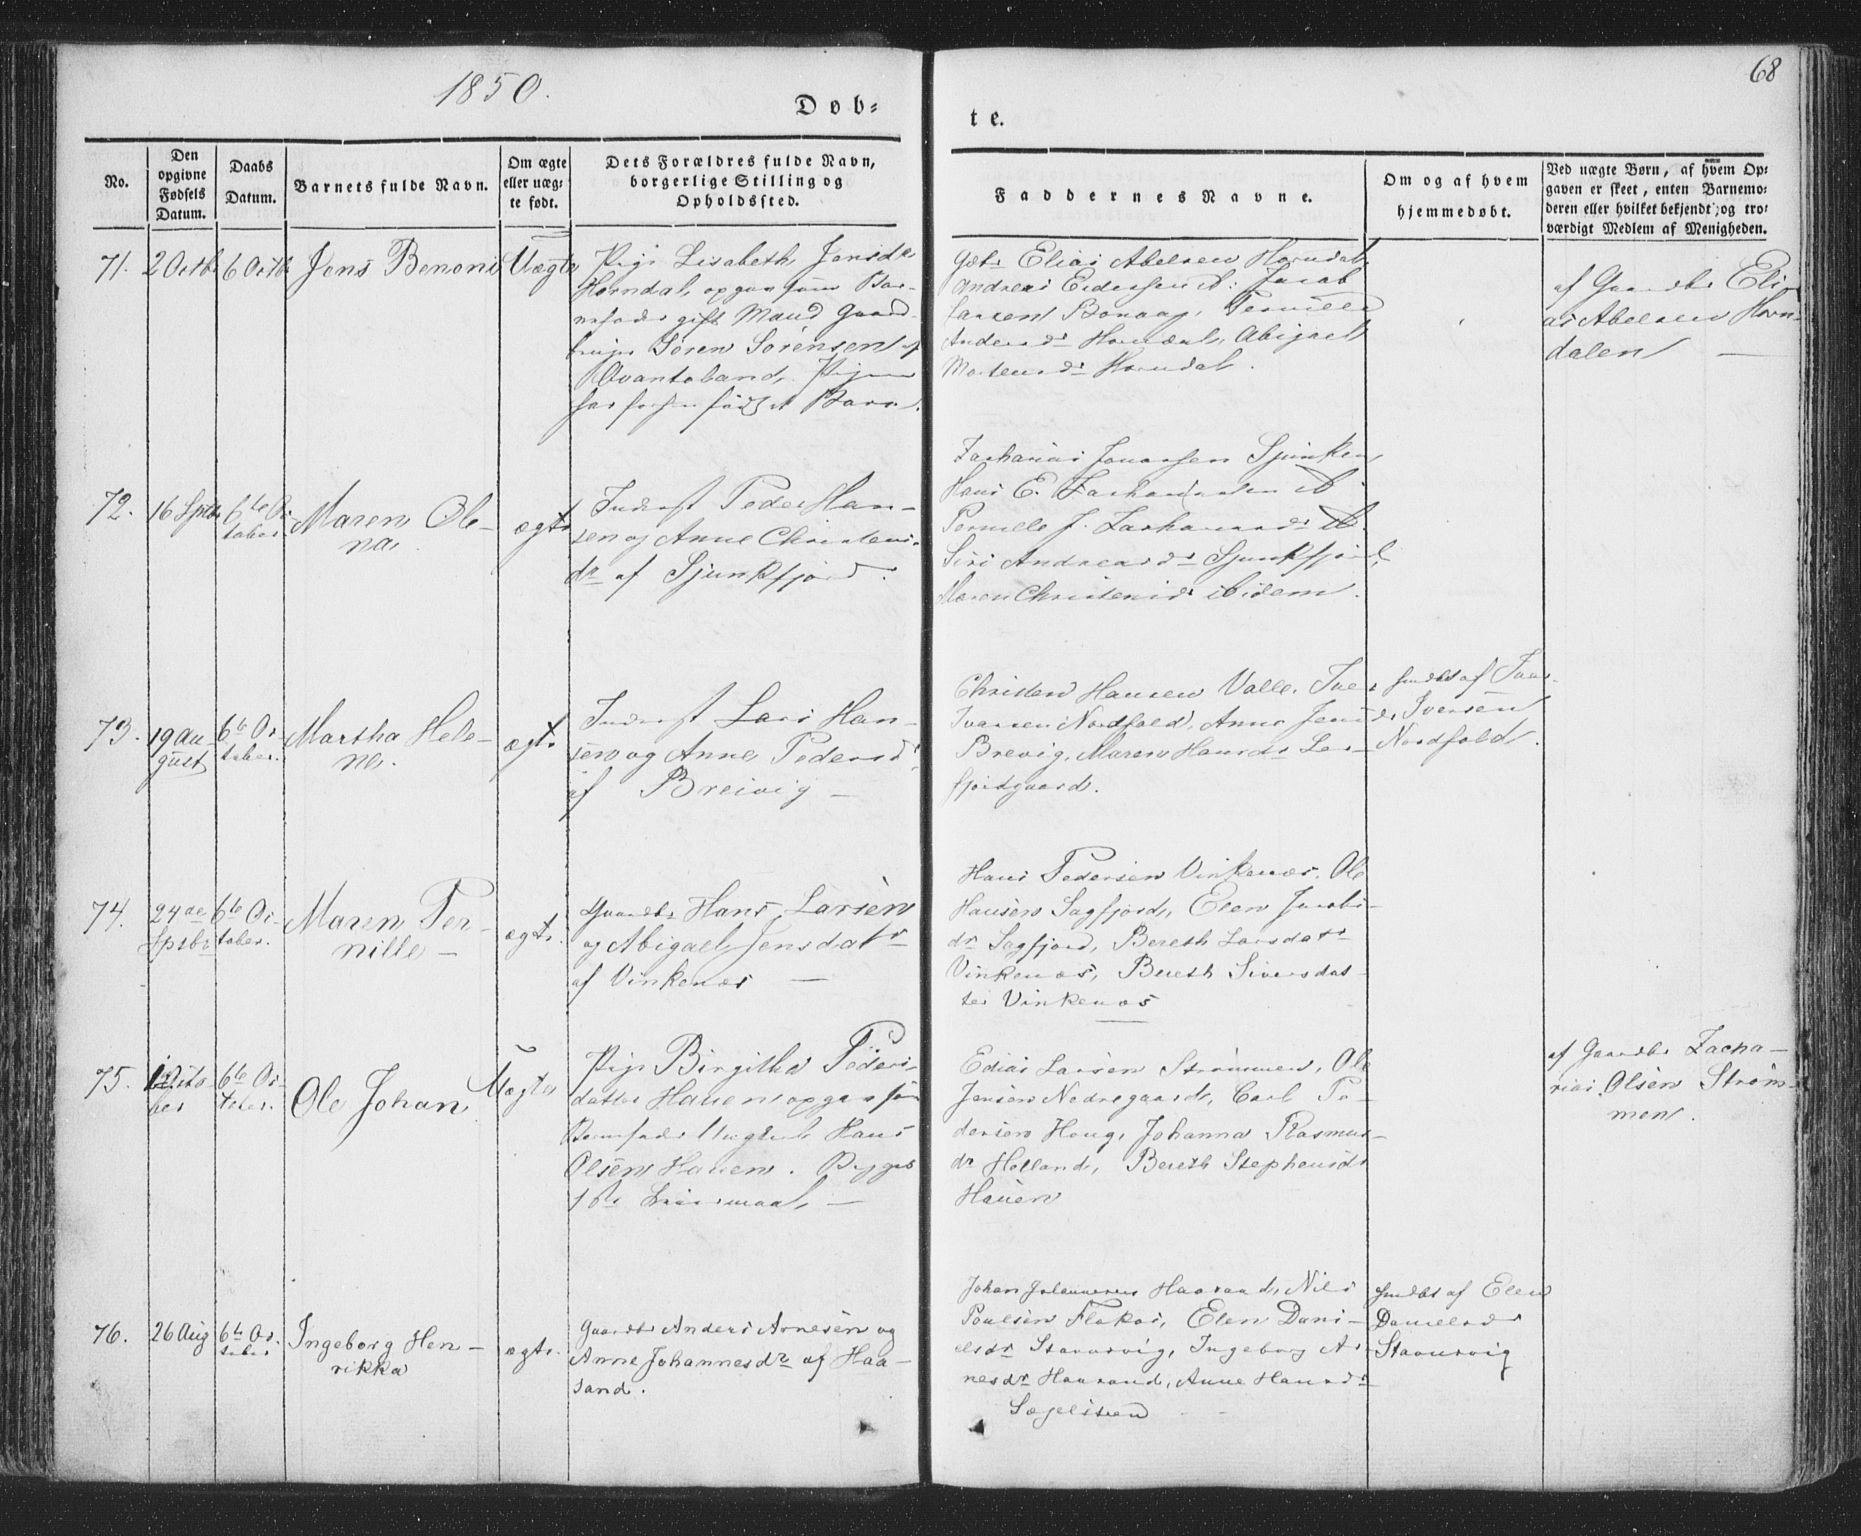 1850.
68
Døb=
te.
No.
Den opgivne Fødsels Datum.
Daabs Datum.
Barnets fulde Navn.
Om ægte eller uæg= te født.
Dets Forældres fulde Navn, borgerlige Stilling og Opholdssted.
Faddernes Navne.
Om og af hvem hjemmedøbt.
Ved uægte Børn, af hvem Op= gaven er skeet, enten Barnemo= deren eller hvilket bekjendt, og tro= værdigt Medlem af Menigheden.
71.
2 Octbr
6 Octbr
Jens Benoni
Uægte
Pige Lisabeth Jensdr
Horndal, opgav som Bar-
nefader gift Mand Gaard-
bruger Søren Sørensen af
Qvantoband. Pigen
har før født et Barn.
Gdbr Elias Abelsen Horndal,
Andreas
Larsen Bonaap, Pernille
Andersdr Horndal, Abigael
Mortensdr Horndal.
af Gaardbr Eli-
as Abelsen Horn-
dalen —
72.
16 Sptbr
6te Oc-
tober
Maren Ole-
na.
ægte
Inderst Peder Han-
sen og Anne Christens-
dr af Sjunkfjord.
Zacharias Jonassen Sjunken
Hans E. Zachariassen ib.
Pernille J. Zachariasdr ib.
Siri Andreasdr Sjunkfjord,
Maren Christensdr ibidem.
73.
19 Au-
gust
6te Oc-
tober.
Martha Hele-
ne.
ægte
Inderst Lars Han-
sen og Anne Pedersd.
af Breivig —
Christen Hansen Valle, Iver
Iversen Nordfold, Anne Jensdr
Brevig, Maren Hansdr Ler-
fjordgaard.
hmdbt af Iver
Iversen
Nordfold.
74.
24de
Sptbr
6te Oc-
tober.
Maren Per-
nille —
ægte.
Gaardbr Hans Larsen
og Abigael Jensdatr
af Vinkenæs —
Hans Pedersen Vinkenæs, Ole
Hansen Sagfjord, Elen Jacobs-
dr Sagfjord, Bereth Larsdatr
Vinkenæs, Bereth Siversdat-
ter Vinkenæs
75.
1 Octo-
ber
6te Oc-
tober.
Ole Johan
Uægte
Pige Birgitha Peders-
datter Hauen opgav som
Barnefader Ungkarl Hans
Olsen Hauen. Begges
1ste Leiermaal, —
Edias Larsen Strømmen, Ole
Jensen Nedregaard, Carl Pe-
dersen Houg, Johanna Rasmus-
dr Holland, Bereth Stephensdr
Hauen
af Gaardbr Zacha-
rias Olsen Strøm-
men.
76.
26 Aug
6te Oc-
tober
Ingeborg Hen-
rikka
ægte.
Gaardbr Anders Arnesen og
Anne Johannesdr af Haa-
sand.
Johan Johannesen Haasand, Nils
Poulsen Flakas, Elen Dani-
elsdr Stavarvig, Ingeborg Ar-
nesdr Haasand, Anne Hansdr
Sægelsteen
hmdbt af Elen
Danielsdr
Stavarvig